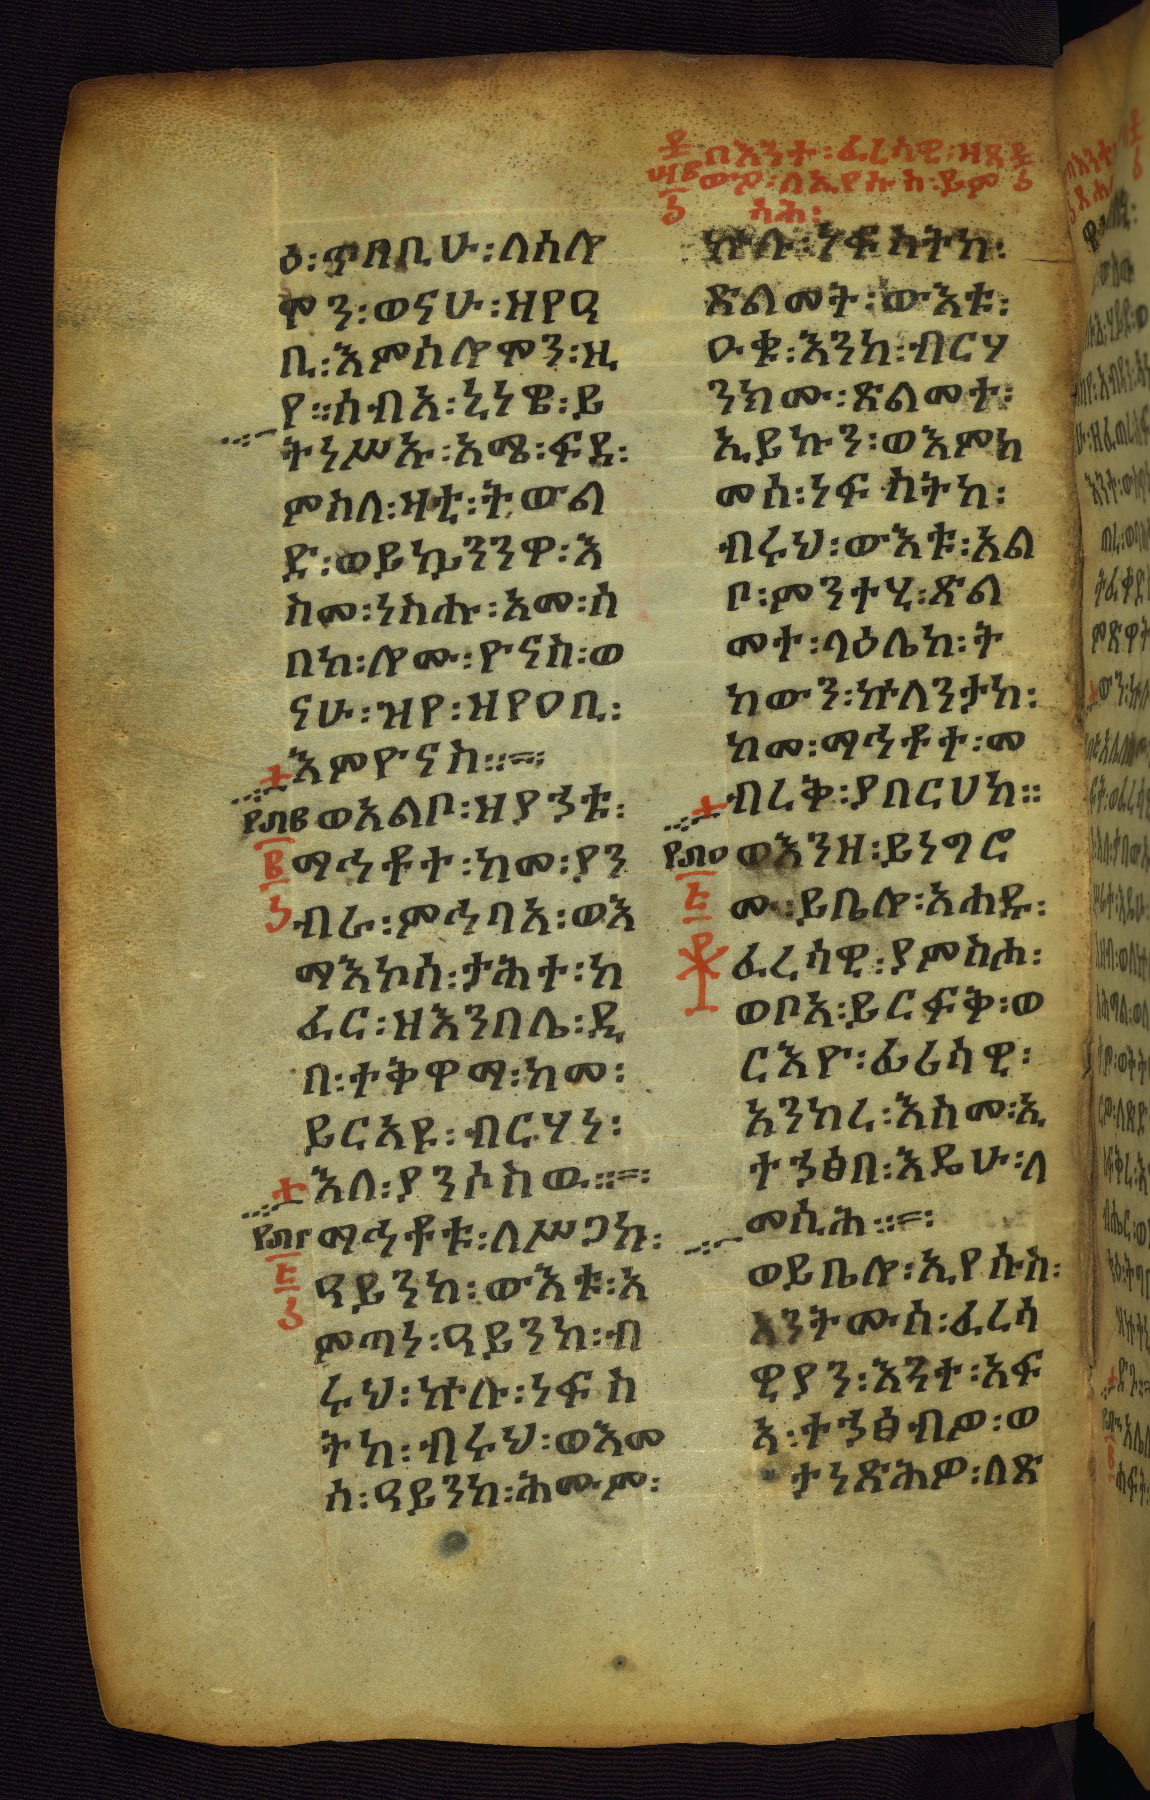 በእንተ፡ፈሪሳዊ፡ዘጸ
ውዖ፡ለኢየሱስ፡ይም
ሳሕ፡
ዕ፡ጥበቢሁ፡ለሰሎ
ሞን፡ወናሁ፡ዝየዐ
ቢ፡እምሰሎሞን፡ዚ
የ።ሰብአ፡ነነዌ፡ይ
ትነሥኡ፡አሜ፡ፍዳ፡
ምስለ፡ዛቲ፡ትውል
ድ፡ወይኴንንዋ፡እ
ስመ፡ነስሑ፡አመ፡ሰ
በከ፡ሎሙ፡ዮናስ፡ወ
ናሁ፡ዝየ፡ዘየዐቢ፡
እምዮናስ።
ወአልቦ፡ዘያኅቱ፡
ማኅቶተ፡ከመ፡ያን
ብራ፡ምኅባአ፡ወእ
ማእኮ፡ሰ፡ታሕተ፡ከ
ፈር፡ዘእንበለ፡ዲ
በ፡ተቅዋማ፡ከመ፡
ይርአዩ፡ብርሃነ፡
እለ፡ያንሶስዉ።
ማኅቶቱ፡ለሥጋከ፡
ዓይንከ፡ውእቱ፡እ
ምጣነ፡ዓይንከ፡ብ
ሩህ፡ኵሉ፡ነፍስ
ትከ፡ብሩህ፡ወእመ
ሰ፡ዓይንከ፡ሕሙም፡
ኵሉ፡ነፍስትከ፡
ጽልመት፡ውእቱ፡
ዑቁ፡እንከ፡ብርሃ
ንክሙ፡ጽልመተ፡
ኢይኩን፡ወእምከ
መሰ፡ነፍስትከ፡
ብሩህ፡ውእቱ፡አል
ቦ፡ምንተሂ፡ጽል
መተ፡ላዕሌከ፡ት
ከውን፡ኵለንታከ፡
ከመ፡ማኅቶተ፡መ
ብረቅ፡ያበርህከ።
ወእንዘ፡ይነግሮ
ሙ፡ይቤሎ፡አሐዱ፡
ፈሪሳዊ፡ያምሳሕ፡
ወቦአ፡ይርፍቅ፡ወ
ርእዮ፡ፈሪሳዊ፡
አንከረ፡እስመ፡ኢ
ተኀፅበ፡እዴሁ፡ለ
መሲሕ።
ወይቤሎ፡ኢየሱስ፡
አንትሙሰ፡ፈሪሳ
ዊያን፡እንተ፡አፍ
አ፡ተኀፅብዎ፡ወ
ታነጽሕዎ፡ለጽ